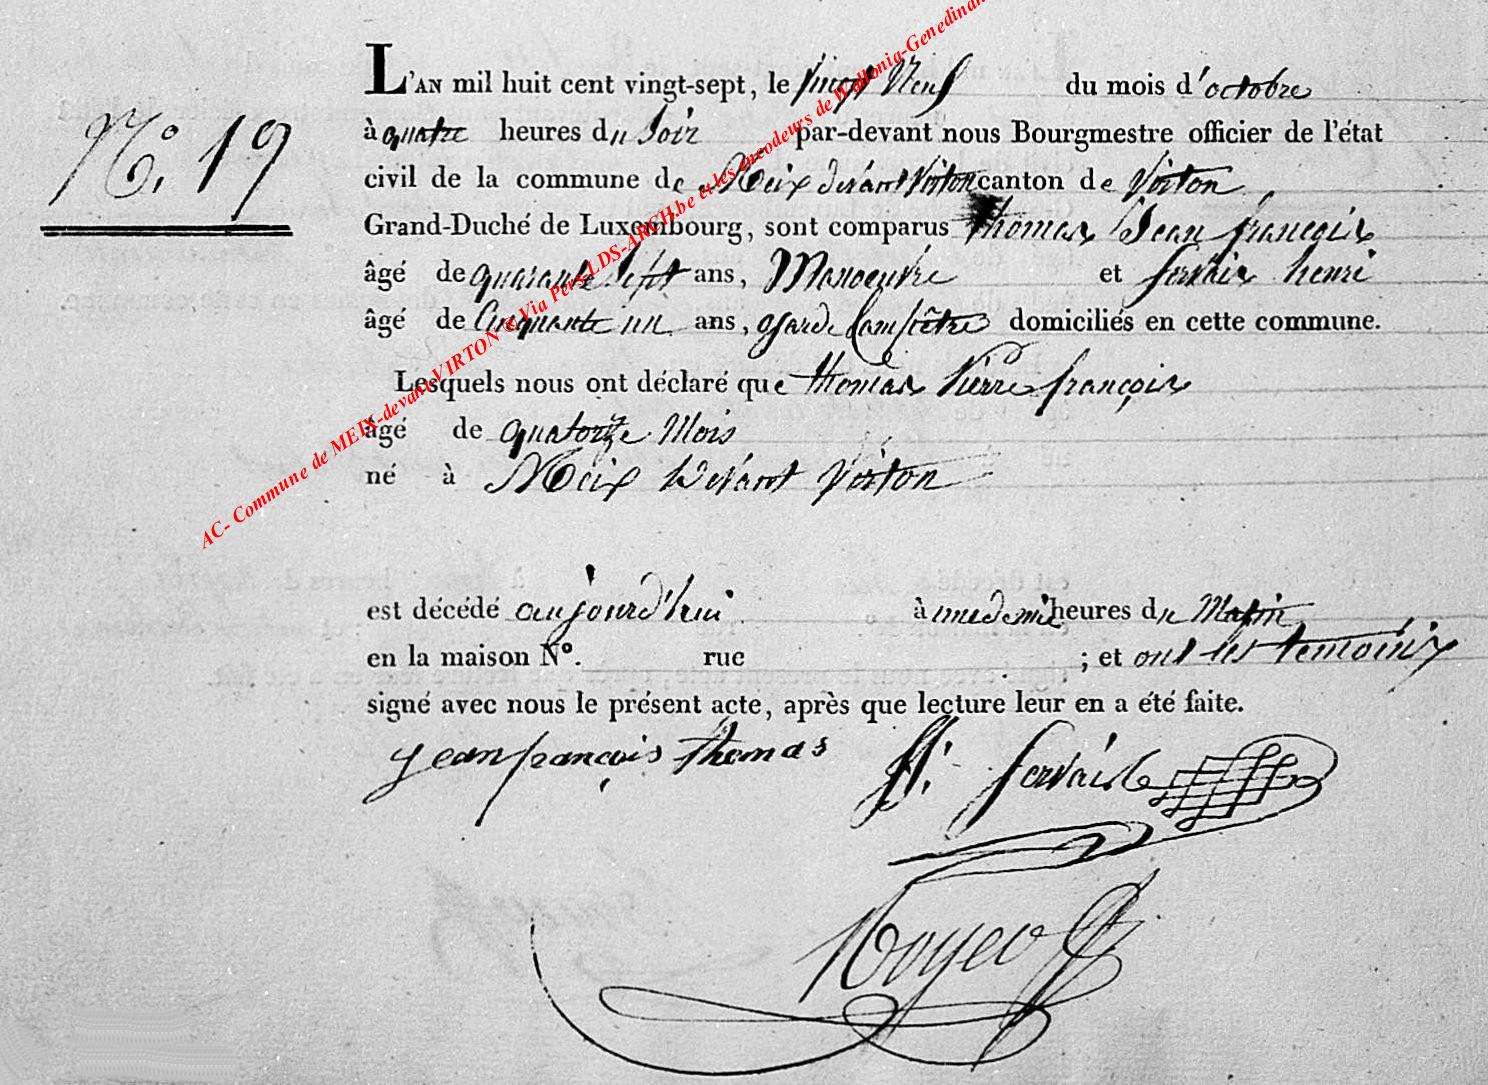 L'AN mil huit cent vingt-sept, le vingt Neuf du mois d'octobre
N.° 19
à quatre heures du Soir par-devant nous Bourgmestre officier de l'état
civil de la commune de Meix devant Virton canton de Virton
Grand-Duché de Luxembourg, sont comparus thomas Jean françois
âgé de quarante Sept ans, Manoeuvre et Servais henri
âgé de Cinquante un ans, garde Champêtre domiciliés en cette commune.
Lesquels nous ont déclaré que thomas Pierre françois
âgé de quatorze Mois
né à Meix devant Virton
est décédé aujourd'hui à une demie heures du Matin
en la maison N°. rue ; et ont les temoins
signé avec nous le présent acte, après que lecture leur en a été faite.
jean françois thomas H. Servais
AC- Commune de MEIX-devant-VIRTON © Via Pers-LDS-ARCH.be et les encodeurs de Wallonia-Genedinan